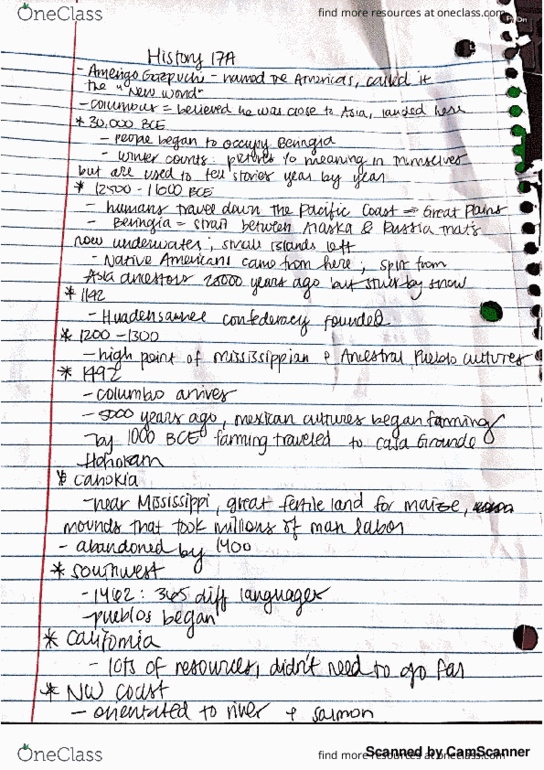 OneClass
find more resources at oneclass.com
History 17A
- Amerigo Gazpuchi - named the Americas, called it
the "New World"
- Columbus = believed he was close to Asia, landed here
* 30,000 BCE
- People began to occupy Beringia
- winter counts: pictures w/o meaning in themselves
but are used to tell stories year by year
* 12500 - 11600 BCE
- humans travel down the Pacific Coast → Great Plains
- Beringia = strait between Alaska & Russia that's
now underwater; small islands left
- Native Americans came from here; split from
Asia ancestors 25000 years ago but stuck by snow
* 1142
- Haudensaunee confederacy founded
* 1200 - 1300
- high point of Mississippian & Ancestral Pueblo cultures
* 1492
- columbo arrives
- 5000 years ago, mexican cultures began farming
- by 1000 BCE farming traveled to casa Grounde
Hohokam
* Cahokia
- near Mississippi, great fertile land for maize,
mounds that took millions of man labor
- abandoned by 1400
* Southwest
- 1492: 365 diff languages
- pueblos began
* California
- lots of resources, didn't need to go far
* NW Coast
- orientated to river & salmon
OneClass
find more resources at oneclass.com
Scanned by CamScanner